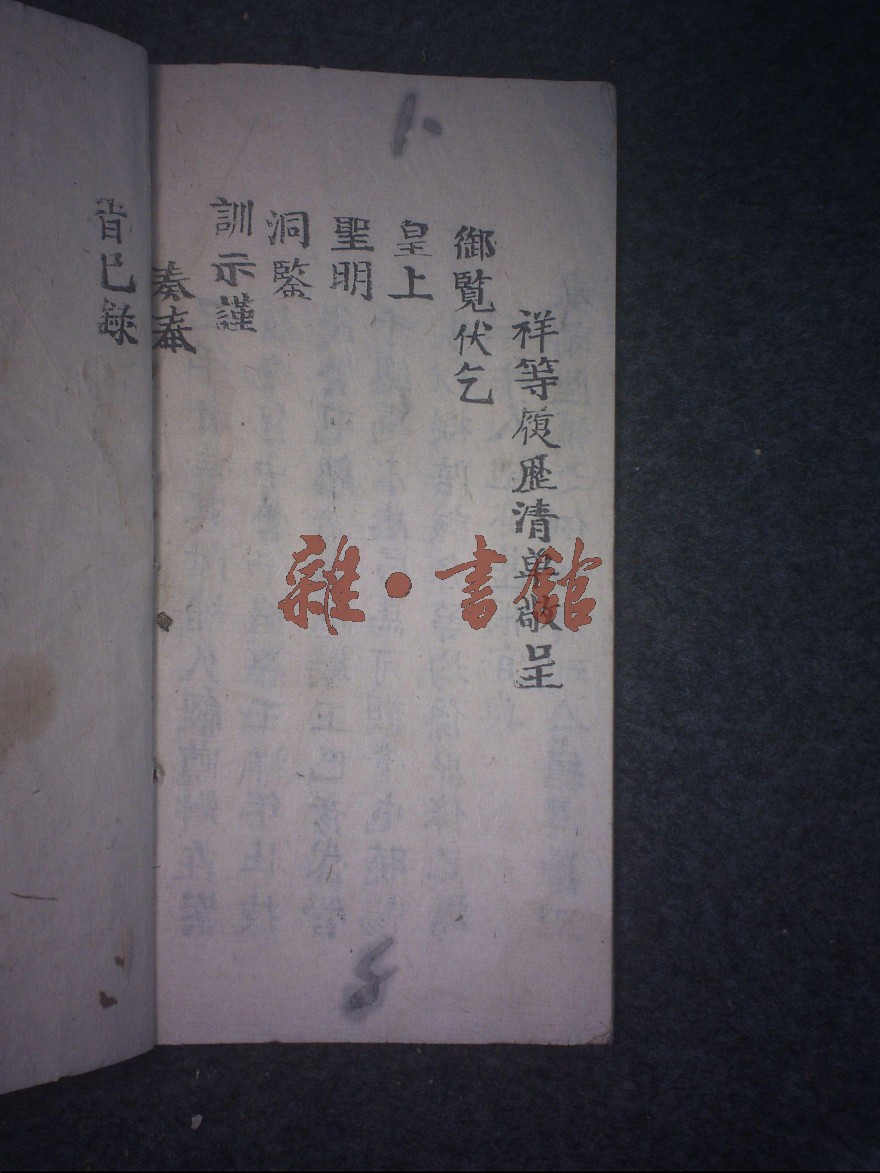 祥等履歷清單敬呈
御覽伏乞
皇上
聖明
洞鑒
訓示謹
奏奉
旨已錄
雜·書館